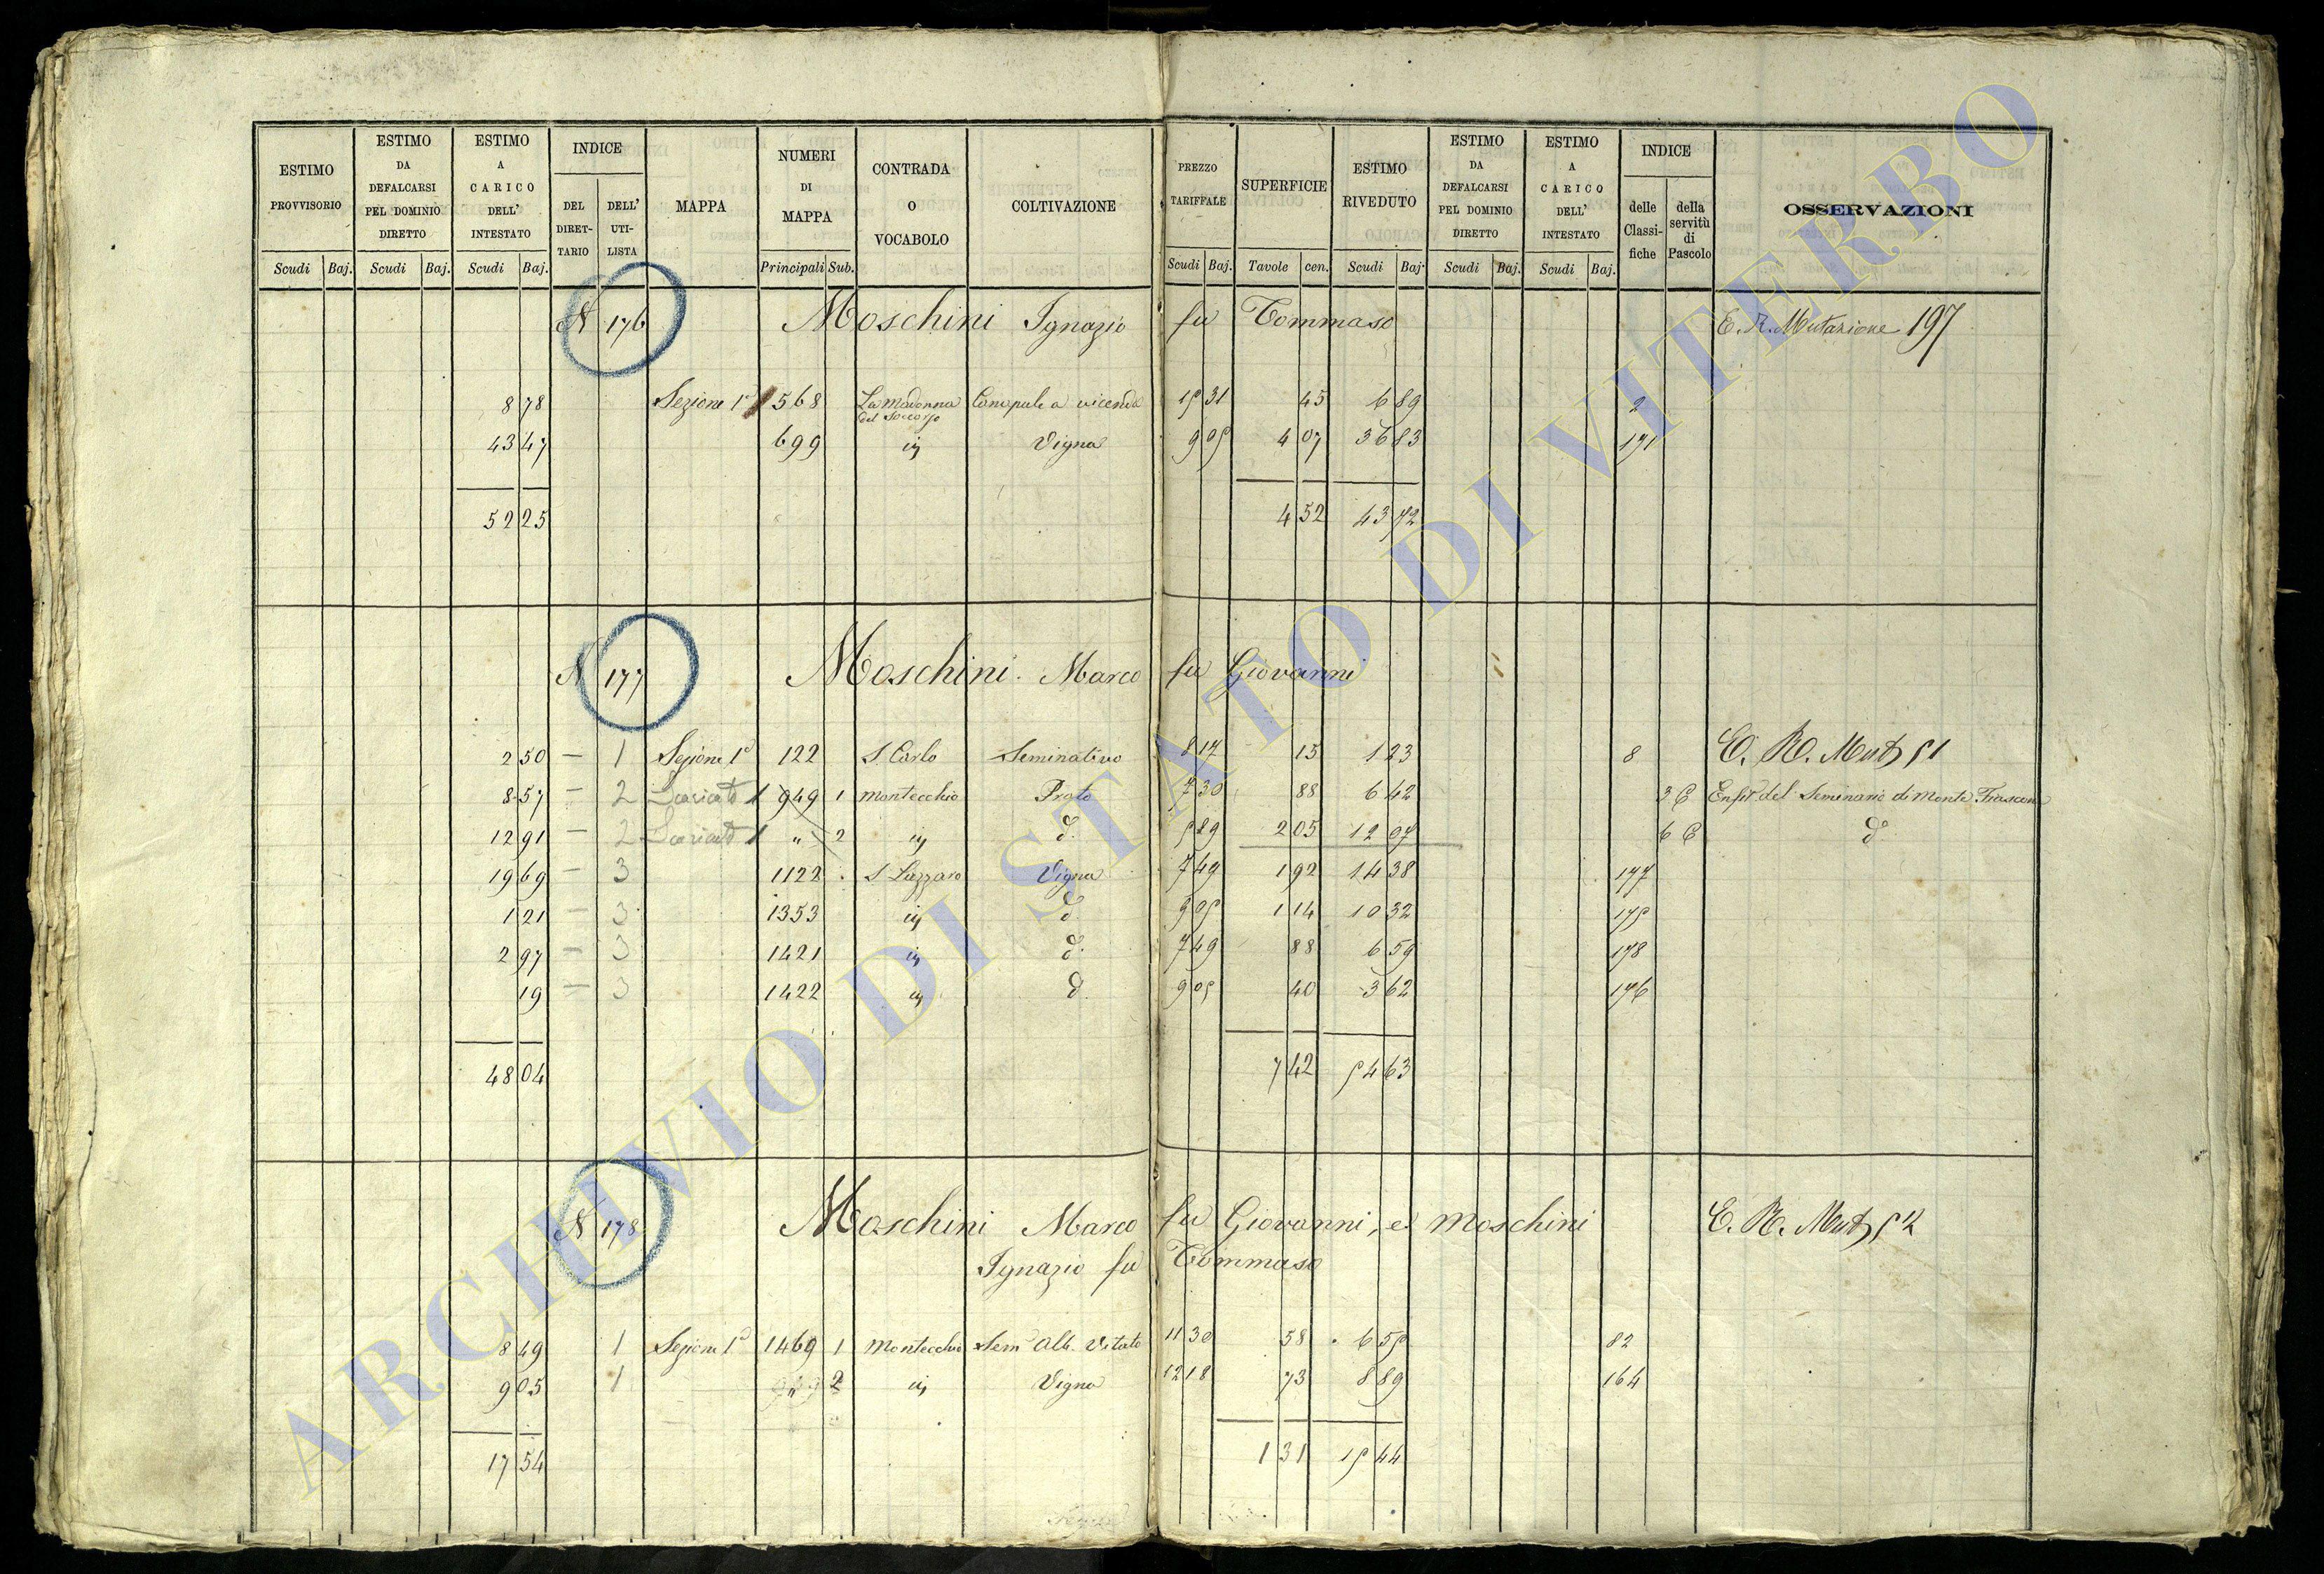 ESTIMO PROVVISORIO
ESTIMO DA DEFALCARSI PEL DOMINIO DIRETTO
ESTIMO A CARICO DELL' INTESTATO
INDICE
DEL DIRET- TARIO
DELL' UTI- LISTA
MAPPA
NUMERI DI MAPPA
CONTRADA O VOCABOLO
COLTIVAZIONE
PREZZO TARIFFALE
SUPERFICIE
ESTIMO RIVEDUTO
ESTIMO DA DEFALCARSI PEL DOMINIO DIRETTO
ESTIMO A CARICO DELL' INTESTATO
INDICE
delle Classi- fiche
della servitù di Pascolo
OSSERVAZIONI
Scudi Baj. Scudi Baj. Scudi Baj. Principali Sub. Scudi Baj. Tavole cen. Scudi Baj. Scudi Baj. Scudi Baj.
N 176 Moschini Ignazio fu Tommaso E. R. Mutazione 197
8 78 Sezione 1ª 568 La Madonna del Soccorso 15 31 45 6 89 2
43 47 699 ivi Vigna 9 05 4 07 36 83 171
52 25 4 52 43 72
N 177 Moschini Marco fu Giovanni
2 50 — 1 Sezione 1ª 122 S. Carlo Seminativo 8 17 15 1 23 8 E. R. Mut 51
8 57 — 2 Scaricato 1 949 1 Montecchio Prato 7 30 88 6 42 3 E
12 91 — 2 Scaricato 1 " 2 ivi d.º 5 89 2 05 12 07 6 E d.º
19 69 — 3 1122 S. Lazzaro Vigna 7 49 1 92 14 38 177
1 21 — 3 1353 ivi d.º 9 05 1 14 10 32 175
2 97 — 3 1421 ivi d.º 7 49 88 6 59 178
19 — 3 1422 ivi d.º 9 05 40 3 62 176
48 04 7 42 54 63
N 178 Moschini Marco fu Giovanni, e Moschini E. R. Mut 52
Ignazio fu Tommaso
8 49 1 Sezione 1ª 1469 1 Montecchio Sem Alb. Vitato 11 30 58 6 55 82
9 05 1 2 ivi Vigna 12 18 73 8 89 164
17 54 1 31 15 44
ARCHIVIO DI STATO DI VITERBO